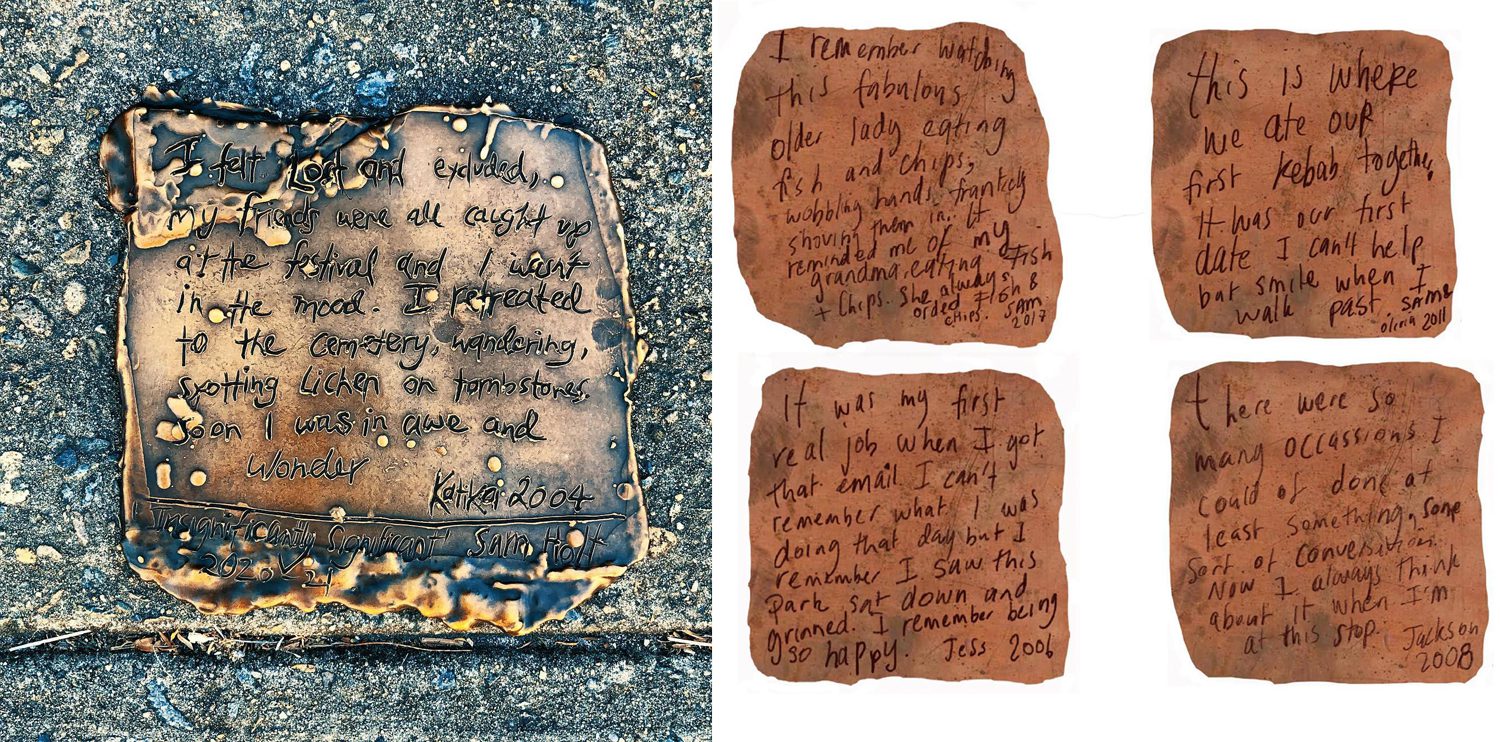 I felt Lost and excluded,
my friends were all caught up
at the festival and I wasn't
in the mood. I retreated
to the cemetery, wandering,
spotting Lichen on tombstones.
Soon I was in awe and
Wonder
Katikai 2004
'Insignificantly Significant' Sam Holt
2020-21
I remember watching
this fabulous
older lady eating
fish and chips,
wobbling hands, franticly
shoving them in. It
reminded me of my
grandma eating Fish
+ Chips. She always
orded Fish &
chips. SAM
2017
this is where
we ate our
first kebab together.
It was our first
date I can't help
but smile when I
walk past
olivia 2011
It was my first
real job when I got
that email I can't
remember what I was
doing that day but I
remember I saw this
park sat down and
grinned. I remember being
so happy. Jess 2006
there were so
many occassions I
could of done at
least something, some
sort of conversation.
Now I always think
about it when I'm
at this stop. Jackson
2008